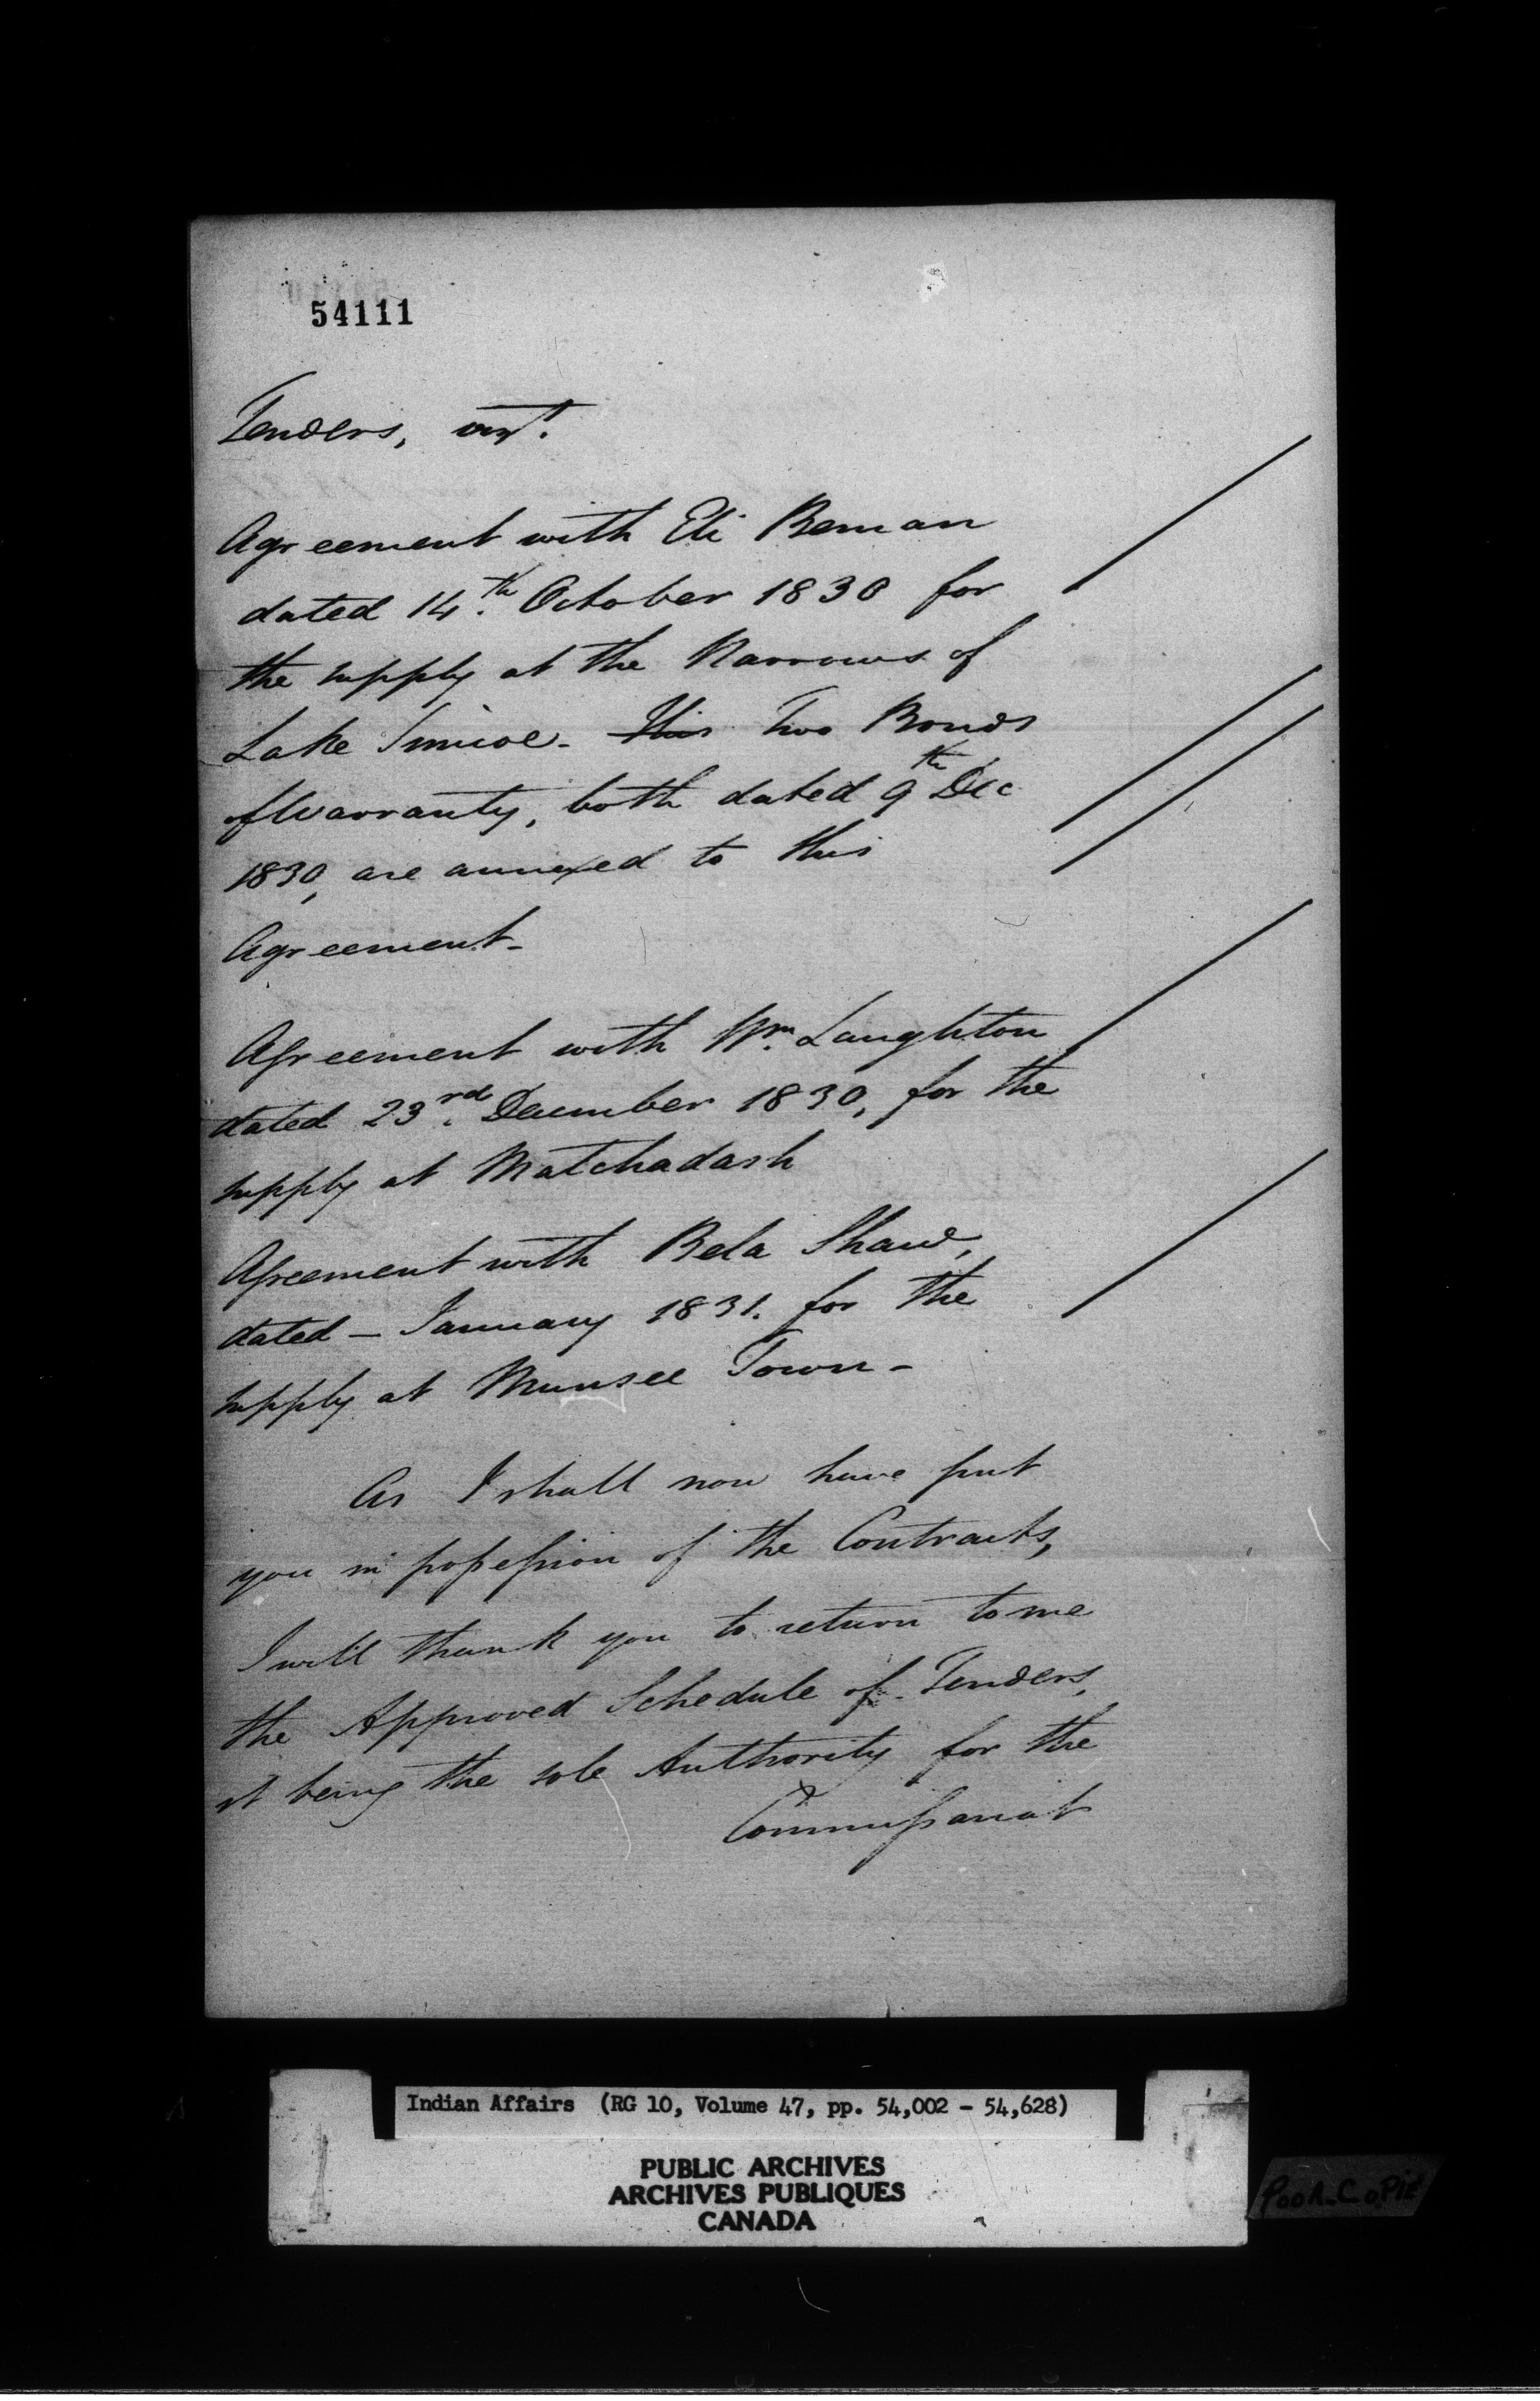 54111
Tenders, vizt.
Agreement with Eli Beman
dated 14th. October 1830 for
the supply at the Narrows of
Lake Simcoe - This Two Bonds
of Warranty, both dated 9th Dec
1830, are annexed to this
Agreement -
Agreement with Wm. Laughton
dated 23rd. December 1830, for the
supply at Matchadash
Agreement with Bela Shaw,
dated - January 1831. for the
supply at Munsee Town -
As I shall now have put
you in possession of the Contracts,
I will thank you to return to me
the Approved Schedule of Tenders,
it being the sole Authority for the
Commissariat
Indian Affairs (RG 10, Volume 47, pp. 54,002 - 54,628)
PUBLIC ARCHIVES
ARCHIVES PUBLIQUES
CANADA
POOR COPIE